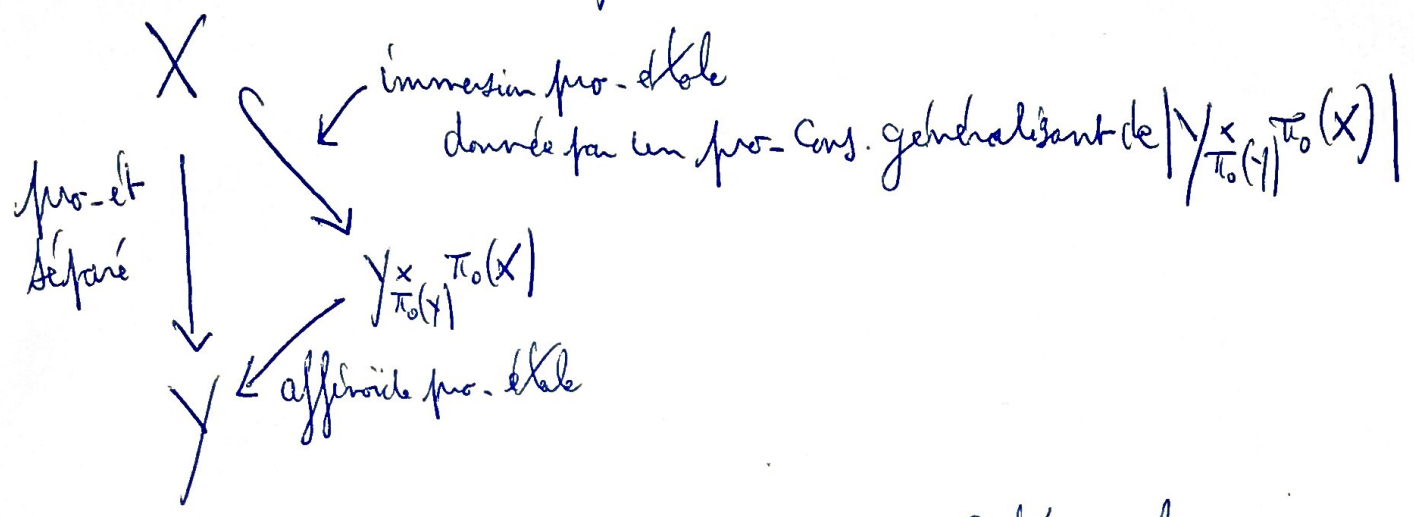 X
immersion pro-étale
donnée par un pro-cons. généralisant de |Y ×_{π₀(Y)} π₀(X)|
pro-ét
séparé
Y ×_{π₀(Y)} π₀(X)
affinoïde pro-étale
Y